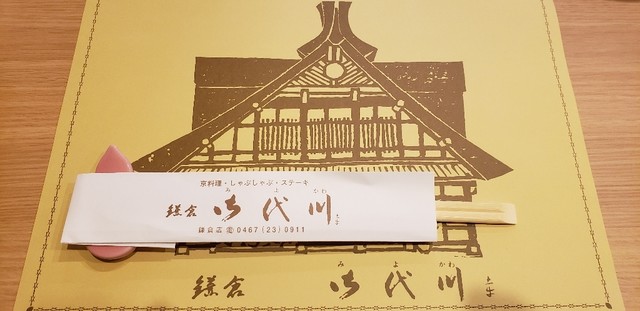 京料理・しゃぶしゃぶ・ステーキ
み よ かわ
鎌倉 御代川
鎌倉店 ☎ 0467 (23) 0911
み よ かわ
鎌倉 御代川